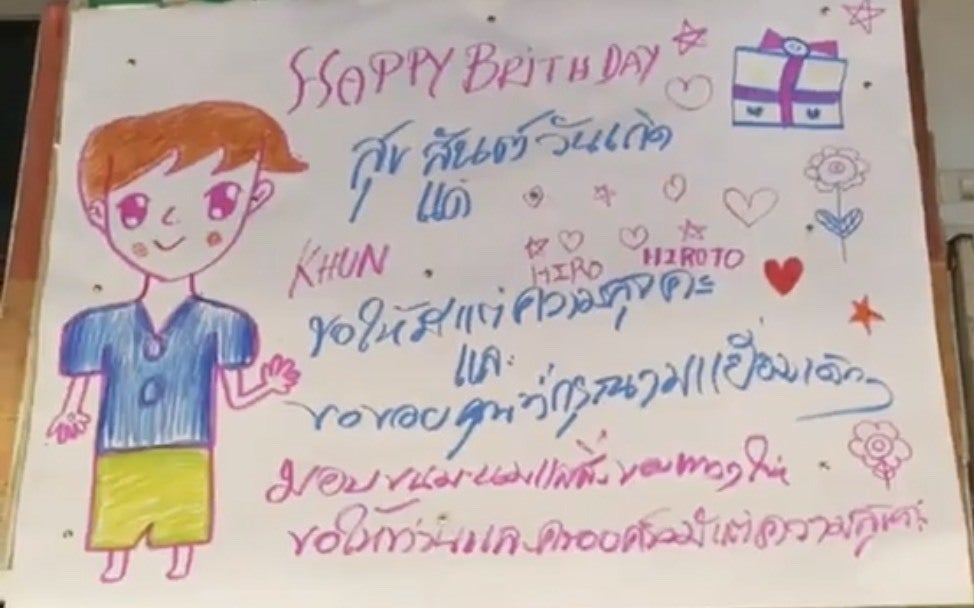 HAPPY BRITHDAY
สุขสันต์วันเกิด
แด่
KHUN HIRO HIROTO
ขอให้มีแต่ความสุขค่ะ
และ
ขอขอบคุณที่กรุณามาเยี่ยมเด็กๆ
มอบขนมนมและสิ่งของต่างๆให้
ขอให้ท่านและครอบครัวมีแต่ความสุขค่ะ